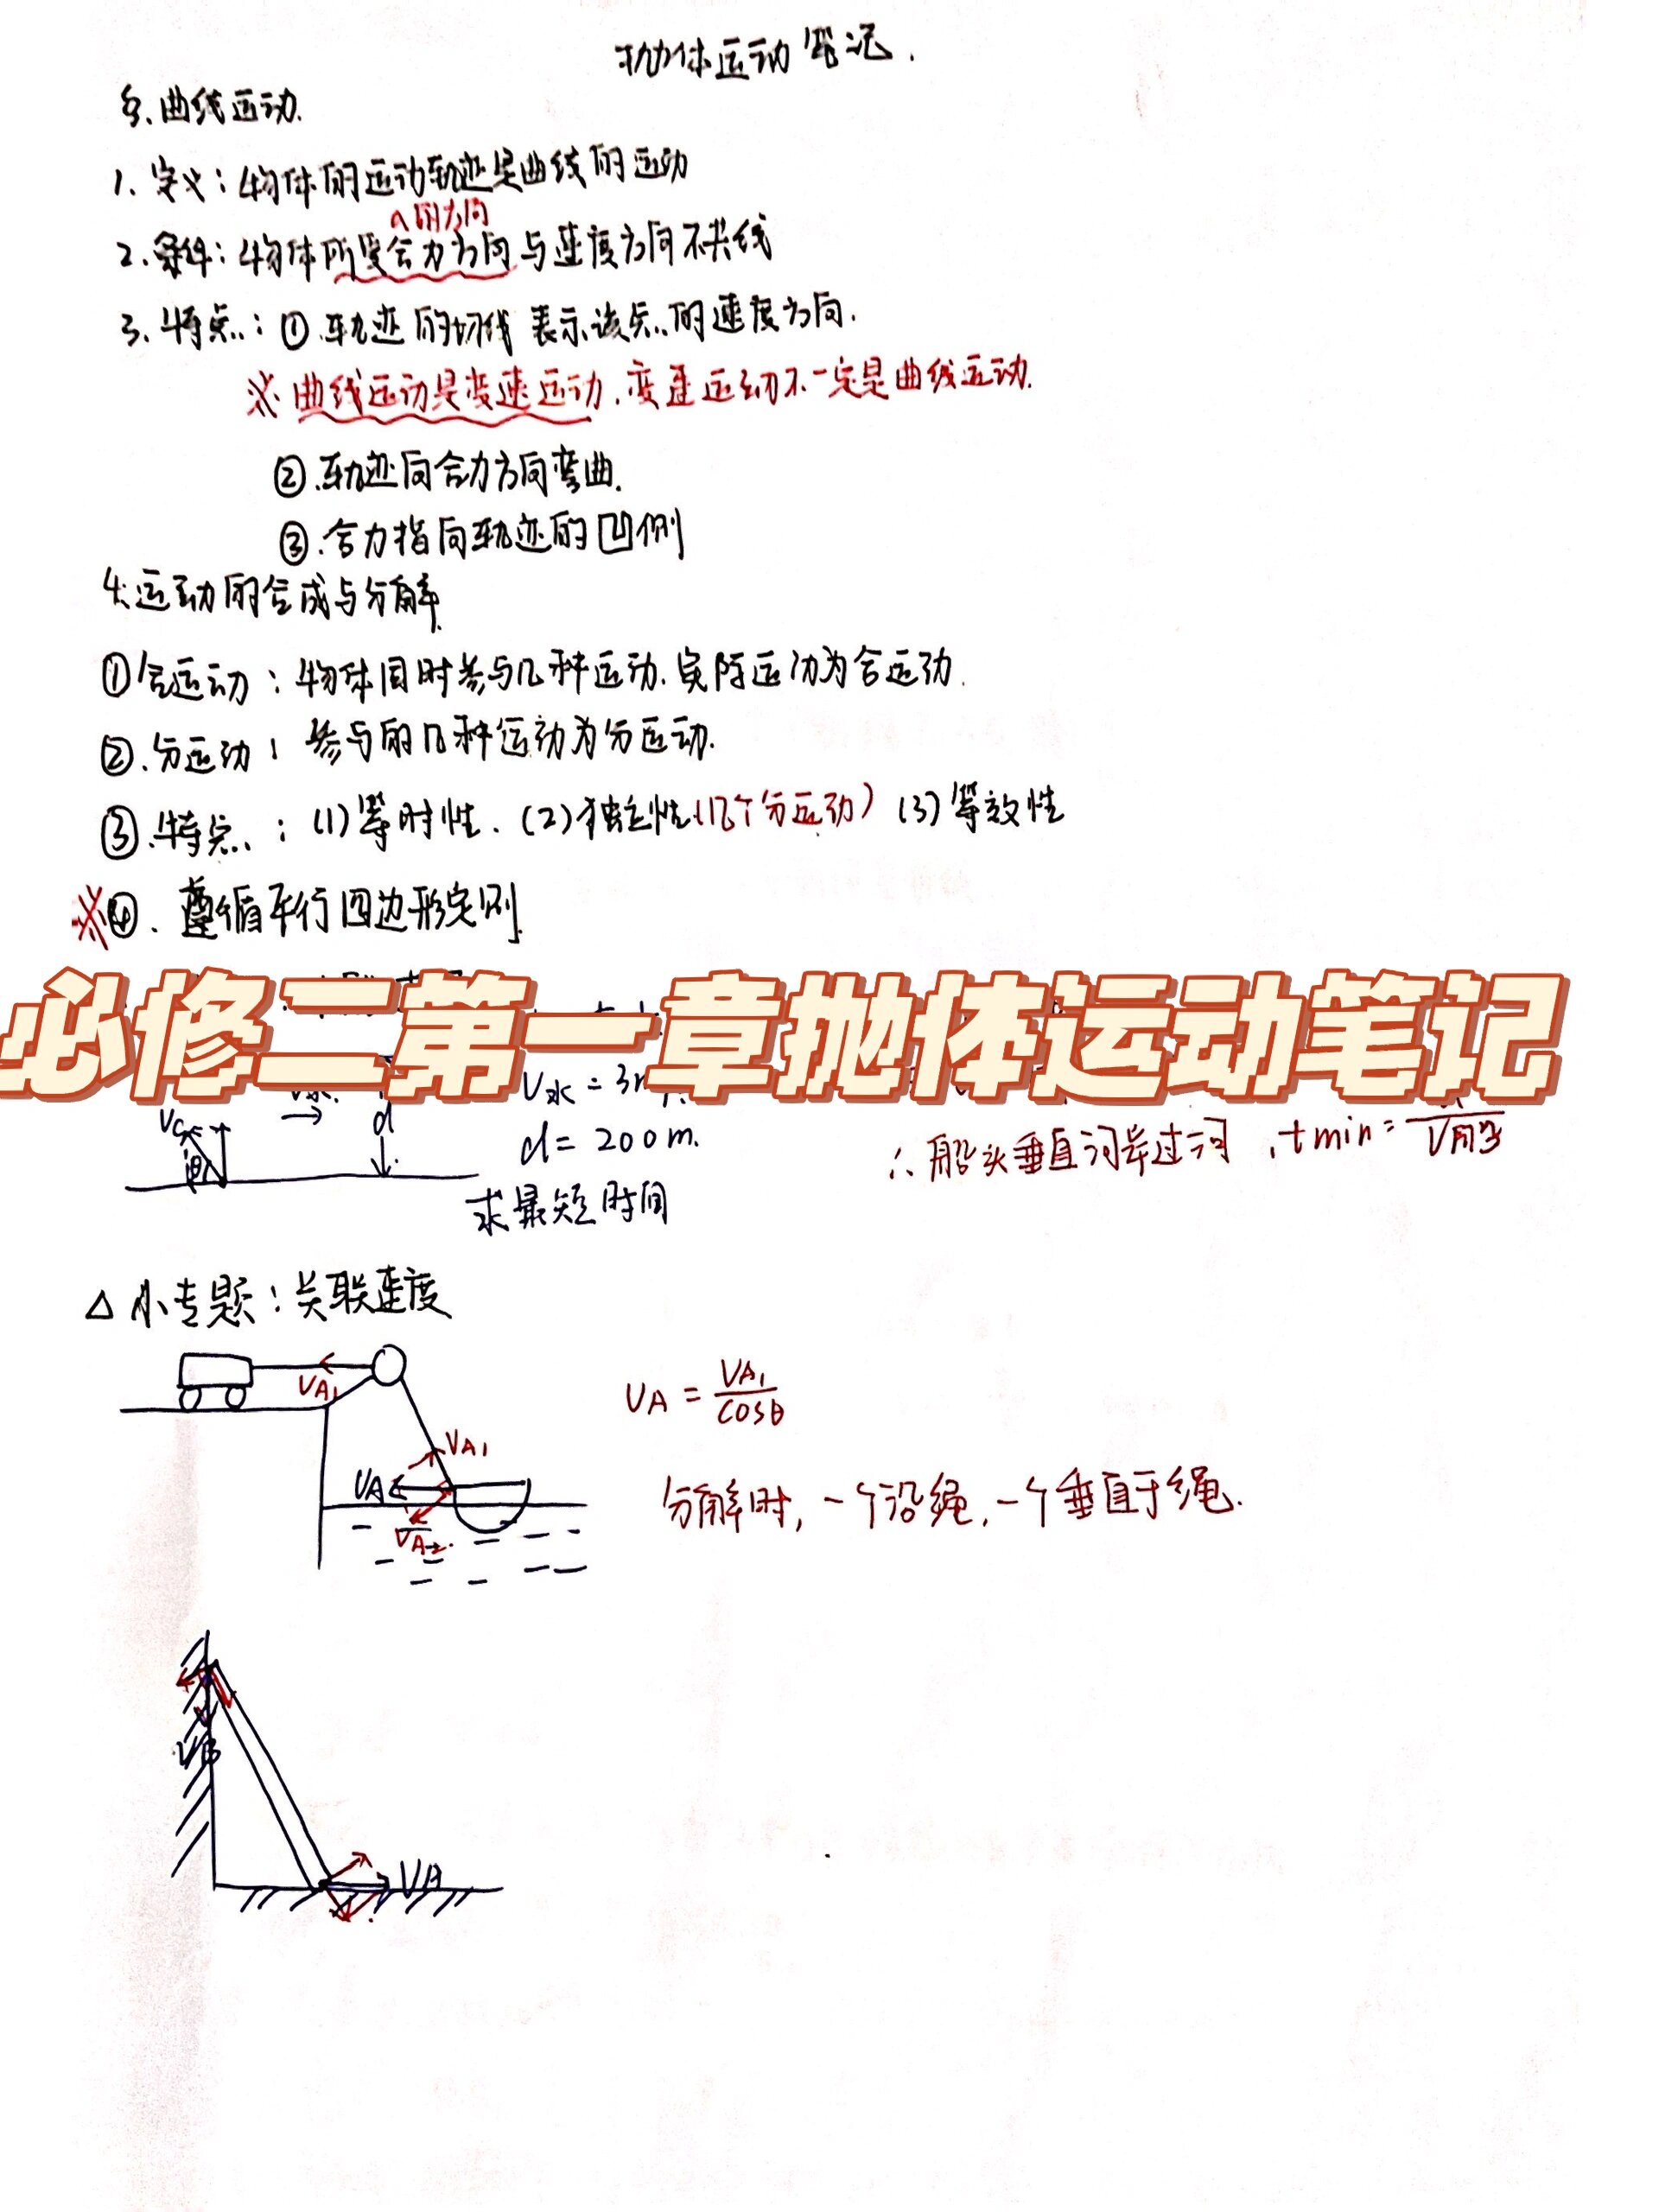 抛体运动笔记.
§.曲线运动.
1. 定义：物体的运动轨迹是曲线的运动
a的方向
2.条件：物体所受合力方向与速度方向不共线
3.特点：①.轨迹的切线表示该点的速度方向.
※曲线运动是变速运动,变速运动不一定是曲线运动.
②.轨迹向合力方向弯曲.
③.合力指向轨迹的凹侧
4.运动的合成与分解.
①合运动：物体同时参与几种运动.实际运动为合运动.
②.分运动：参与的几种运动为分运动.
③.特点：(1)等时性. (2)独立性(几个分运动) (3)等效性
※④. 遵循平行四边形定则.
必修二第一章抛体运动笔记
V水=3m
d
θ
d=200m.
∴船头垂直河岸过河,tmin=
V船
求最短时间
△小专题：关联速度
VA1
VA=VA1/cosθ
VA1
VA
VA2.
分解时,一个沿绳,一个垂直于绳.
VB
VA